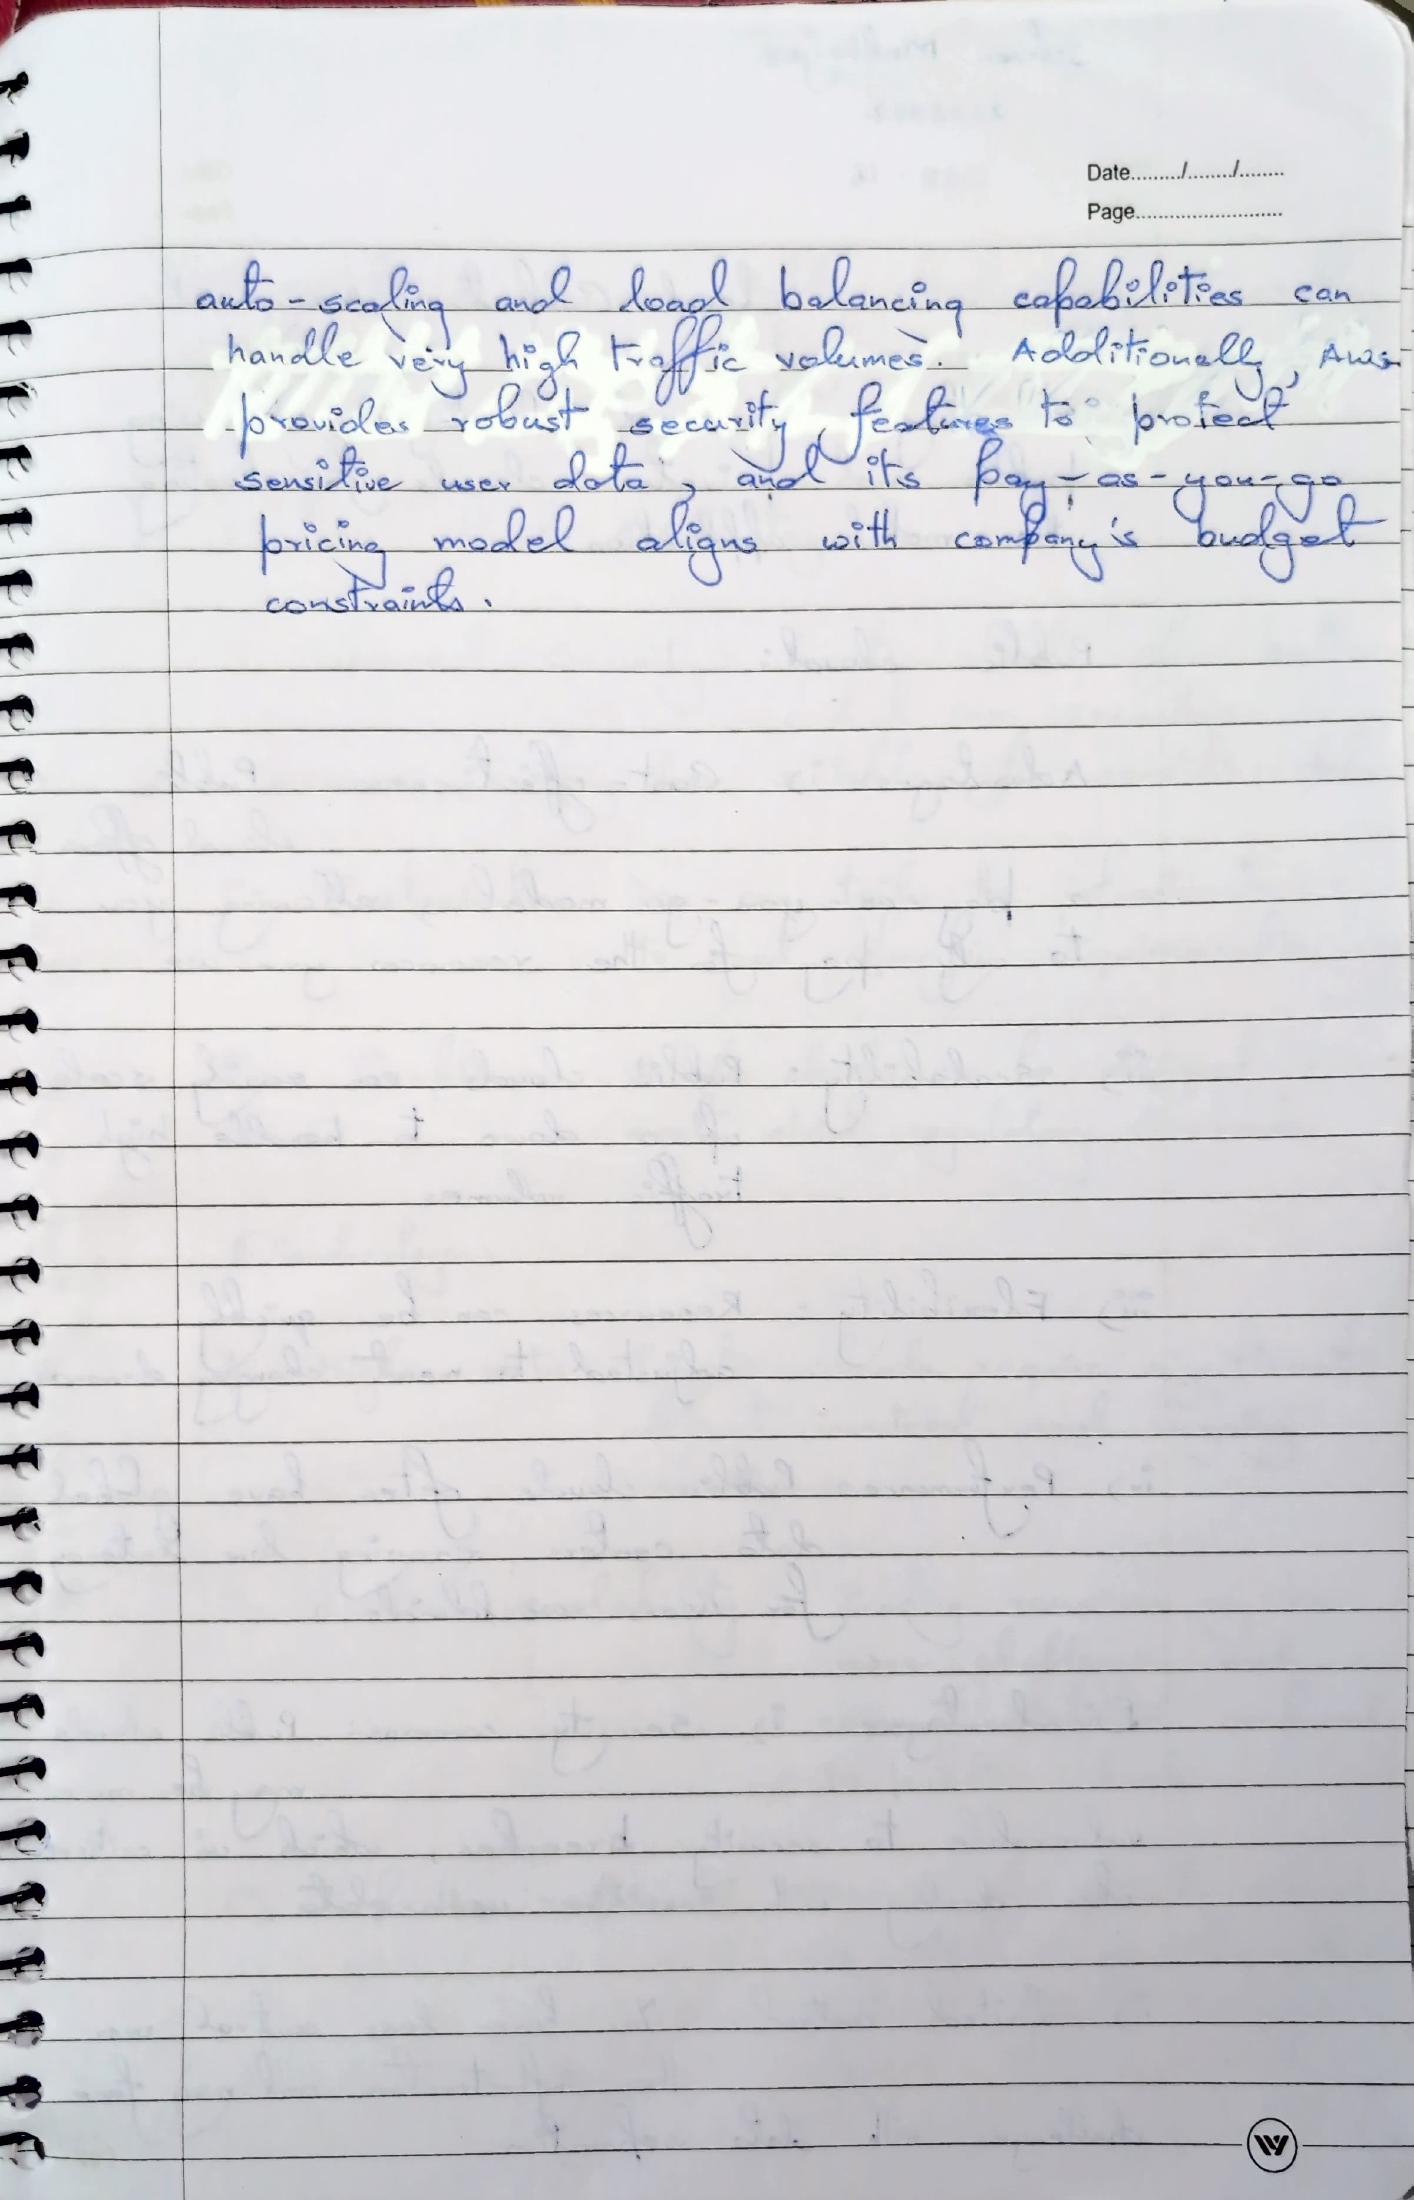 Date........./......../........
Page...........................
auto-scaling and load balancing capabilities can
handle very high traffic volumes. Additionally, AWS
provides robust security features to protect
sensitive user data, and its pay-as-you-go
pricing model aligns with company's budget
constraints.